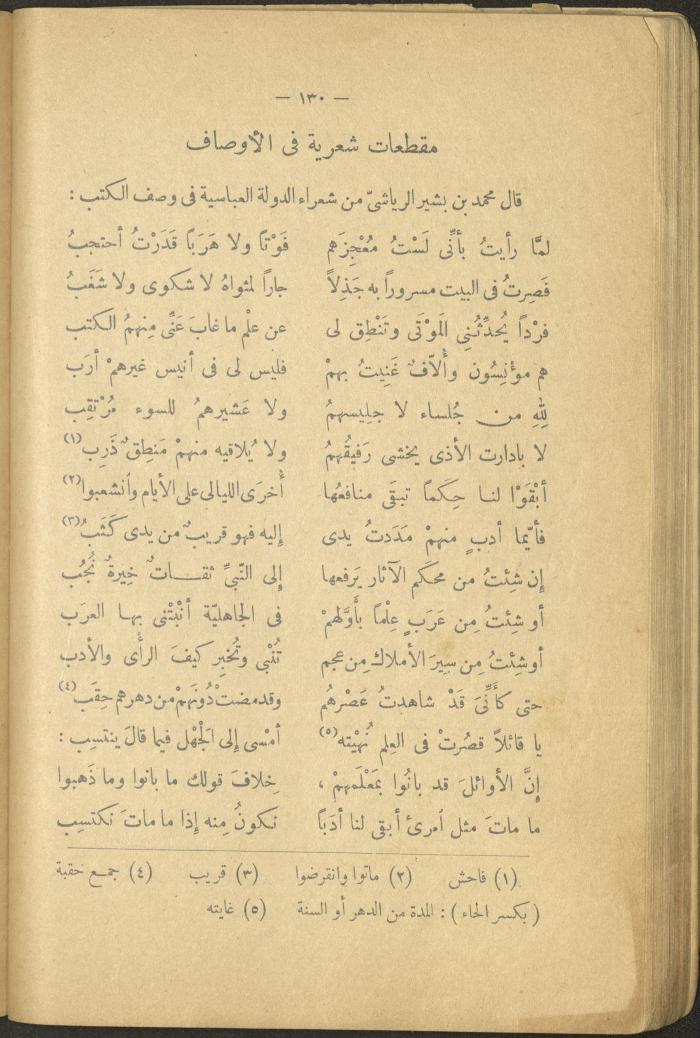 — ١٣٠ —
مقطعات شعرية فى الأوصاف
قال محمد بن بشير الرياشىّ من شعراء الدولة العباسية فى وصف الكتب :
لمَّا رأيتُ بأنِّى لَسْتُ مُعْجِزَهم فَوْتاً ولا هَرَباً قَدَرْتُ أحتجبُ
فَصِرتُ فى البيت مسروراً به جَذِلاً جاراً لمثواهُ لا شكوى ولا شَغَبُ
فرْداً يُحدِّثُنِى المَوْتَى وتَنْطِق لى عن علْم ما غابَ عَنِّى مِنهمُ الكتب
هم مؤنِسُون وأُلاّفٌ غَنِيتُ بهمْ فليس لى فى أنيس غيرهمْ أرَب
لِلهِ من جُلساء لا جليسهمُ ولا عَشيرهمُ للسوء مُرْتقِب
لا بادارت الأذى يخشى رَفيقُهمُ ولا يُلاقيه منهمْ مَنطِقٌ ذَرِب (١)
أبْقَوْا لنا حِكَماً تبقَى منافعُها أُخرَى الليالى على الأيام وٱنشعبوا (٢)
فأيّما أدبٍ منهمْ مَدَدتُ يدى إليه فهو قريبٌ من يدى كَثَبُ (٣)
إن شِئتُ من محكَم الآثار يَرفعها إلى النّبىِّ ثقــات خِيرةٌ نُجُب
أو شئتُ مِن عَرَبٍ عِلْماً بأوَّلهمْ فى الجاهليّة أنْبَتْنى بها العرَب
أو شئتُ مِن سِيَرَ الأملاك مِن عجم تُنْبِى وتُخبِر كيفَ الرأى والأدب
حتى كأنِّىَ قَدْ شاهدتُ عَصْرهُم وقد مضتْ دُونَهمْ من دهرهم حِقَب (٤)
يا قائلاً قصُرتْ فى العِلم نُهيْته (٥) أمْسى إلى الجَهْل فيما قالَ ينتسِب :
إنَّ الأوائلَ قد بانُوا بمَعْلَمهمْ ، خِلافَ قولك ما بانوا وما ذَهبوا
ما ماتَ مثل ٱمرئ أبقى لنا أدَباً نكونُ مِنه إذا ما ماتَ نكتسِب
(١) فاحش (٢) ماتوا وانقرضوا (٣) قريب (٤) جمع حقبة
( بكسر الحاء ) : المدة من الدهر أو السنة (٥) غايته